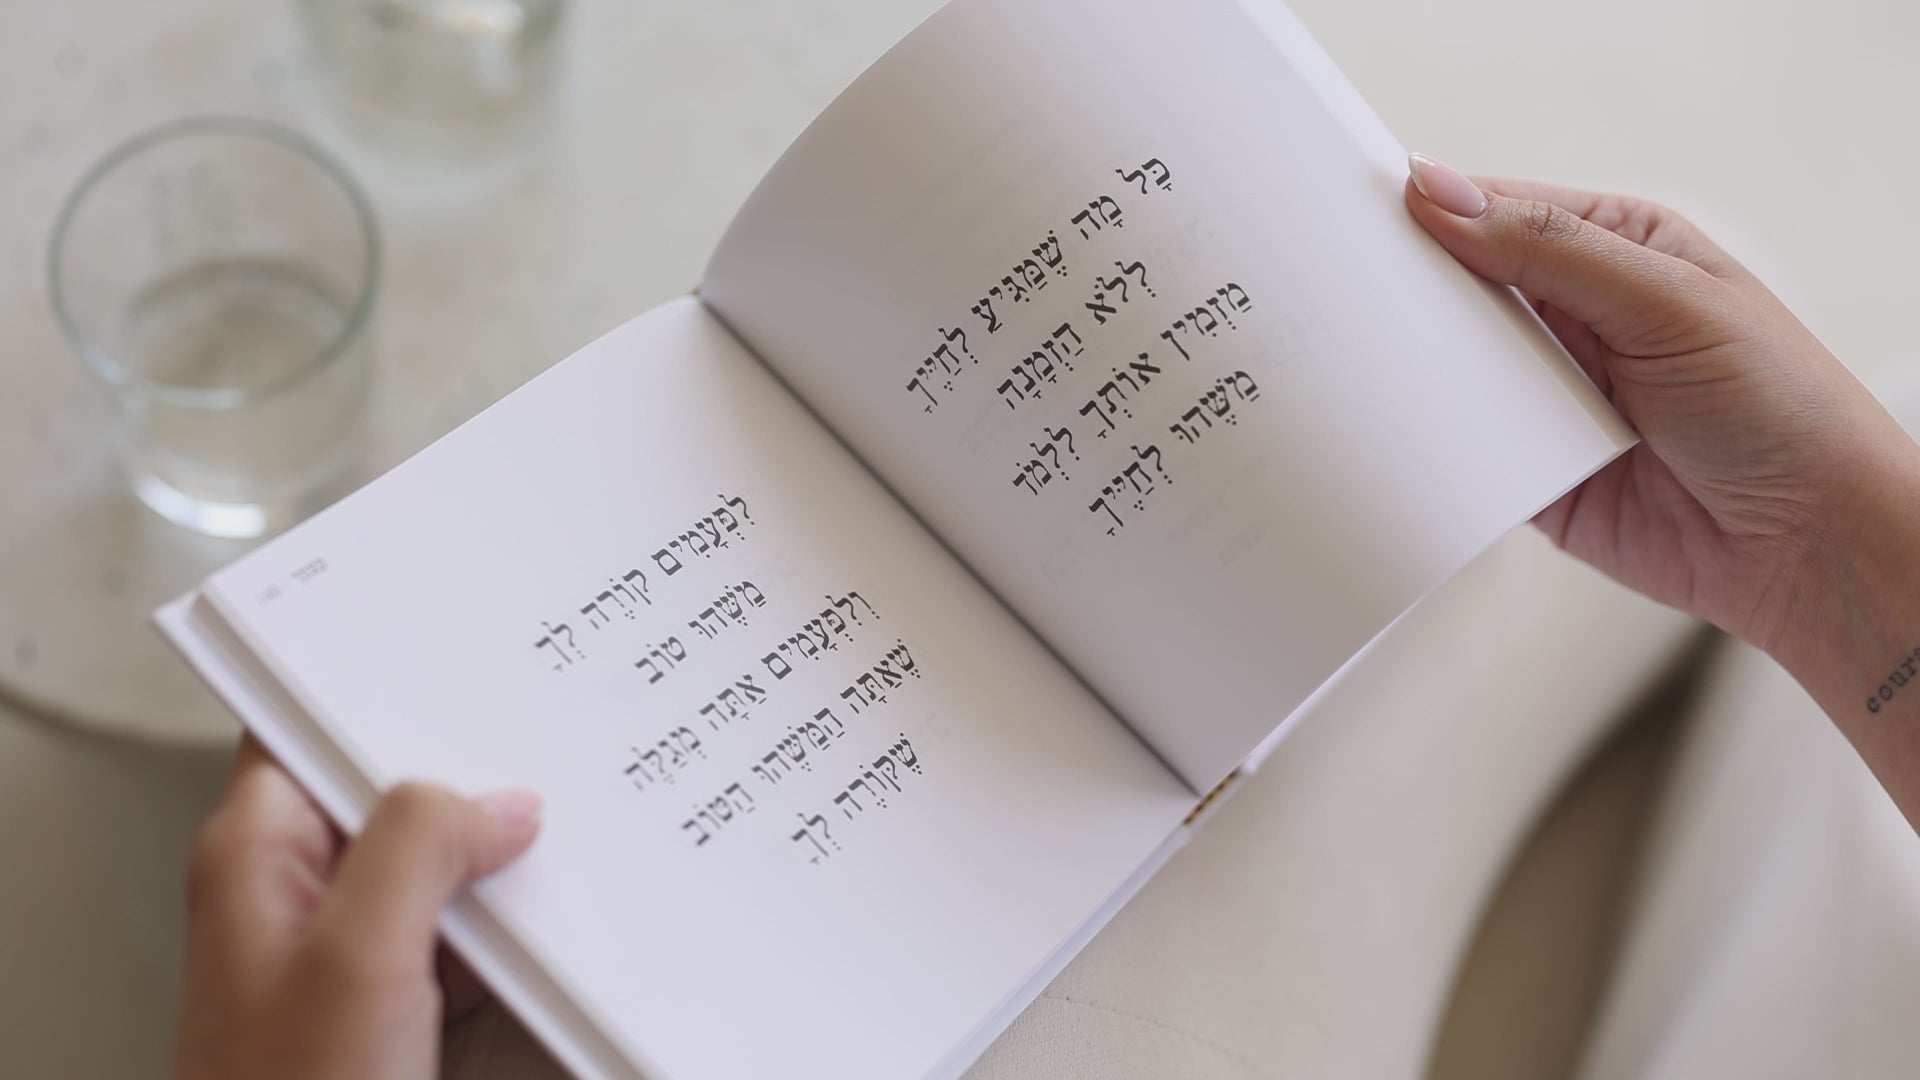 כָּל מָה שֶׁמַּגִּיעַ לְחַיֶּיךָ
לְלֹא הַזְמָנָה
מַזְמִין אוֹתְךָ לִלְמֹד
מַשֶּׁהוּ לְחַיֶּיךָ
לִפְעָמִים קוֹרֶה לְךָ
מַשֶּׁהוּ טוֹב
וְלִפְעָמִים אַתָּה מְגַלֶּה
שֶׁאַתָּה הַמַּשֶּׁהוּ הַטּוֹב
שֶׁקּוֹרֶה לְךָ